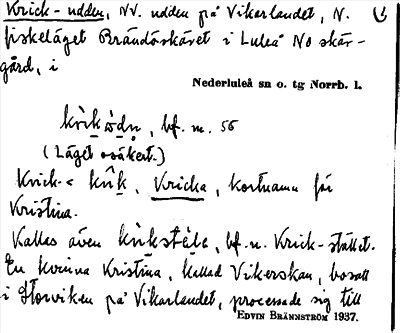 Krick-udden, NV. udden på Vikarlandet, N.
fiskeläget Brändöskäret i Luleå NO skär-
gård, i
Nederluleå sn o. tg Norrb. l.
bf. m. 56
(Läget osäkert.)
Krick- < Kricka, kortnamn för
Kristina.
Kallas även bf. n. Krick-stället.
En kvinna Kristina, kallad Vikerskan, bosatt
i Storviken på Vikarlandet, processade sig till
EDVIN BRÄNNSTRÖM 1937.